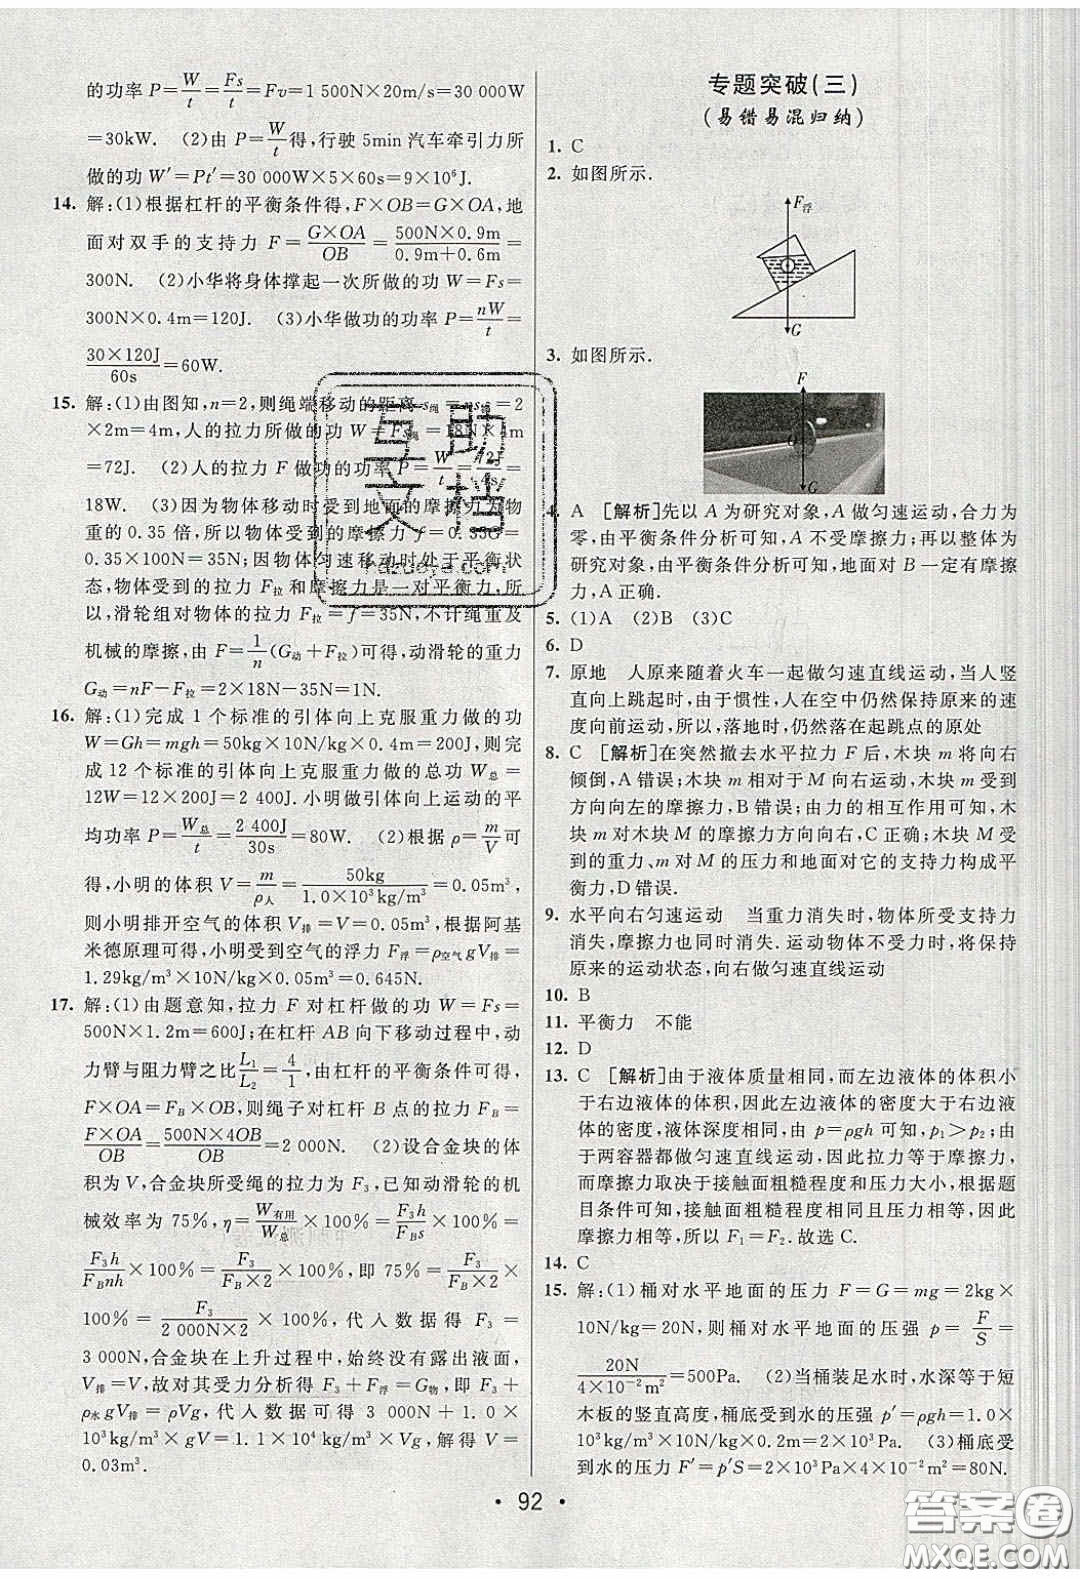 的功率 P=W/t=Fs/t=Fv=1 500N×20m/s=30 000W
=30kW. (2)由 P=W/t得,行驶 5min 汽车牵引力所
做的功 W′=Pt′=30 000W×5×60s=9×10⁶J.
14. 解:(1)根据杠杆的平衡条件得,F×OB=G×OA,地
面对双手的支持力 F=G×OA/OB=500N×0.9m/0.9m+0.6m=
300N. (2)小华将身体撑起一次所做的功 W=Fs=
300N×0.4m=120J. (3)小华做功的功率 P=nW/t=
30×120J/60s=60W.
15. 解:(1)由图知,n=2,则绳端移动的距离 s绳=ns物=2
×2m=4m,人的拉力所做的功 W=Fs绳=18N×4m
=72J. (2)人的拉力 F 做功的功率 P=W/t=72J/4s=
18W. (3)因为物体移动时受到地面的摩擦力为物
重的 0.35 倍,所以物体受到的摩擦力 f=0.35G=
0.35×100N=35N;因物体匀速移动时处于平衡状
态,物体受到的拉力和摩擦力是一对平衡力,所
以,滑轮组对物体的拉力 F拉=f=35N,不计绳重及
机械的摩擦,由 F=1/n(G动+F拉)可得,动滑轮的重力
G动=nF−F拉=2×18N−35N=1N.
16. 解:(1)完成 1 个标准的引体向上克服重力做的功
W=Gh=mgh=50kg×10N/kg×0.4m=200J,则完
成 12 个标准的引体向上克服重力做的总功 W总=
12W=12×200J=2 400J.小明做引体向上运动的平
均功率 P=W总/t=2 400J/30s=80W. (2)根据 ρ=m/V可
得,小明的体积 V=m/ρ人=50kg/1.0×10³kg/m³=0.05m³,
则小明排开空气的体积 V排=V=0.05m³,根据阿基
米德原理可得,小明受到空气的浮力 F浮=ρ空气gV排=
1.29kg/m³×10N/kg×0.05m³=0.645N.
17. 解:(1)由题意知,拉力 F 对杠杆做的功 W=Fs=
500N×1.2m=600J;在杠杆 AB 向下移动过程中,动
力臂与阻力臂之比L₁/L₂=4/1,由杠杆的平衡条件可得,
F×OA=F_B×OB,则绳子对杠杆 B 点的拉力 F_B=
F×OA/OB=500N×4OB/OB=2 000N. (2)设合金块的体
积为 V,合金块所受绳的拉力为 F₃,已知动滑轮的机
械效率为 75%,η=W有用/W总×100%=F₃h/F_Bs×100%=
F₃h/F_Bnh×100%=F₃/F_B×2×100%,即 75%=F₃/F_B×2×
100%=F₃/2 000N×2×100%,代入数据得 F₃=
3 000N,合金块在上升过程中,始终没有露出液面,
V排=V,故对其受力分析得 F₃+F浮=G物,即 F₃+
ρ水gV排=ρVg,代入数据可得 3 000N+1.0×
10³kg/m³×gV=1.1×10⁴kg/m³×Vg,解得 V=
0.03m³.
专题突破(三)
(易错易混归纳)
1. C
2. 如图所示.
F浮
G
3. 如图所示.
F
G
4. A [解析]先以 A 为研究对象,A 做匀速运动,合力为
零,由平衡条件分析可知,A 不受摩擦力;再以整体为
研究对象,由平衡条件分析可知,地面对 B 一定有摩擦
力,A 正确.
5. (1)A (2)B (3)C
6. D
7. 原地 人原来随着火车一起做匀速直线运动,当人竖
直向上跳起时,由于惯性,人在空中仍然保持原来的速
度向前运动,所以,落地时,仍然落在起跳点的原处
8. C [解析]在突然撤去水平拉力 F 后,木块 m 将向右
倾倒,A 错误;木块 m 相对于 M 向右运动,木块 m 受到
方向向左的摩擦力,B 错误;由力的相互作用可知,木
块 m 对木块 M 的摩擦力方向向右,C 正确;木块 M 受
到的重力、m 对 M 的压力和地面对它的支持力构成平
衡力,D 错误.
9. 水平向右匀速运动 当重力消失时,物体所受支持力
消失,摩擦力也同时消失.运动物体不受力时,将保持
原来的运动状态,向右做匀速直线运动
10. B
11. 平衡力 不能
12. D
13. C [解析]由于液体质量相同,而左边液体的体积小
于右边液体的体积,因此左边液体的密度大于右边液
体的密度,液体深度相同,由 p=ρgh 可知,p₁>p₂;由
于两容器都做匀速直线运动,因此拉力等于摩擦力,
而摩擦力取决于接触面粗糙程度和压力大小,根据题
目条件可知,接触面粗糙程度相同且压力相等,因此
摩擦力相等,所以 F₁=F₂.故选 C.
14. C
15. 解:(1)桶对水平地面的压力 F=G=mg=2kg×
10N/kg=20N,则桶对水平地面的压强 p=F/S=
20N/4×10⁻²m²=500Pa. (2)当桶装足水时,水深等于短
木板的竖直高度,桶底受到水的压强 p′=ρgh=1.0×
10³kg/m³×10N/kg×0.2m=2×10³Pa. (3)桶底受
到水的压力 F′=p′S=2×10³Pa×4×10⁻²m²=80N.
• 92 •
互助
文档
hazuoya.com
答案圈
MXQE.COM